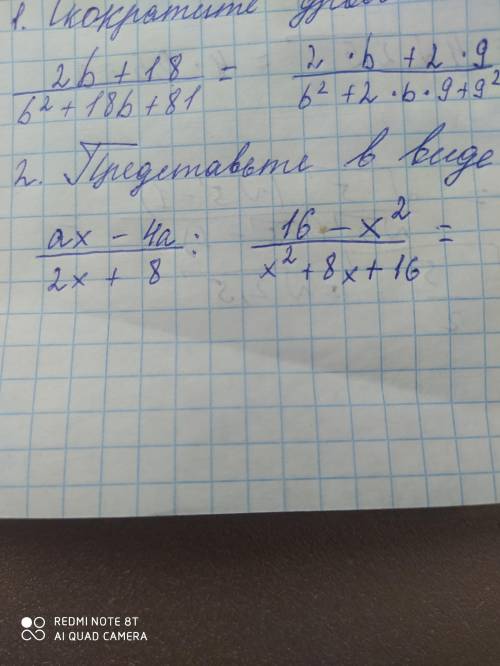 1. Сократите
2b + 18 / b² + 18b + 81 = 2 · b + 2 · 9 / b² + 2 · b · 9 + 9²
2. Представьте в виде
ax - 4a / 2x + 8 : 16 - x² / x² + 8x + 16 =
REDMI NOTE 8T
AI QUAD CAMERA